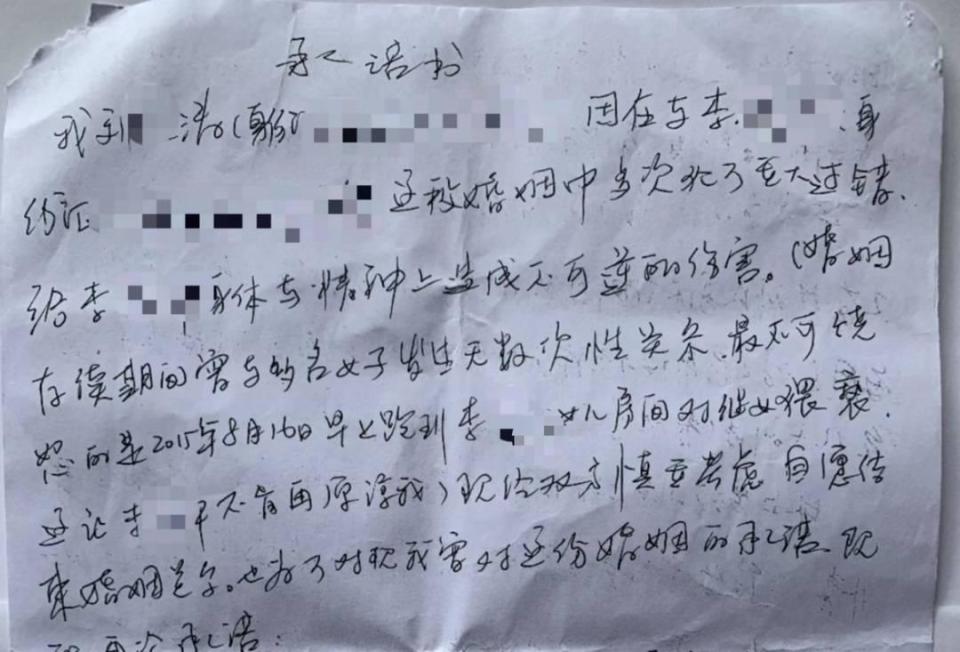 承诺书
我刘 涛(身份 因在与李 身
份证 这段婚姻中多次犯了重大过错,
给李 身体与精神上造成不可逆的伤害。(婚姻
存续期间曾与多名女子发生无数次性关系,最不可饶
恕的是2015年8月16日早上跑到李 女儿房间对继女猥亵,
这让李 不肯再原谅我)现经双方慎重考虑自愿结
束婚姻关系。也为了对现我曾对这份婚姻的承诺,现
再次承诺: